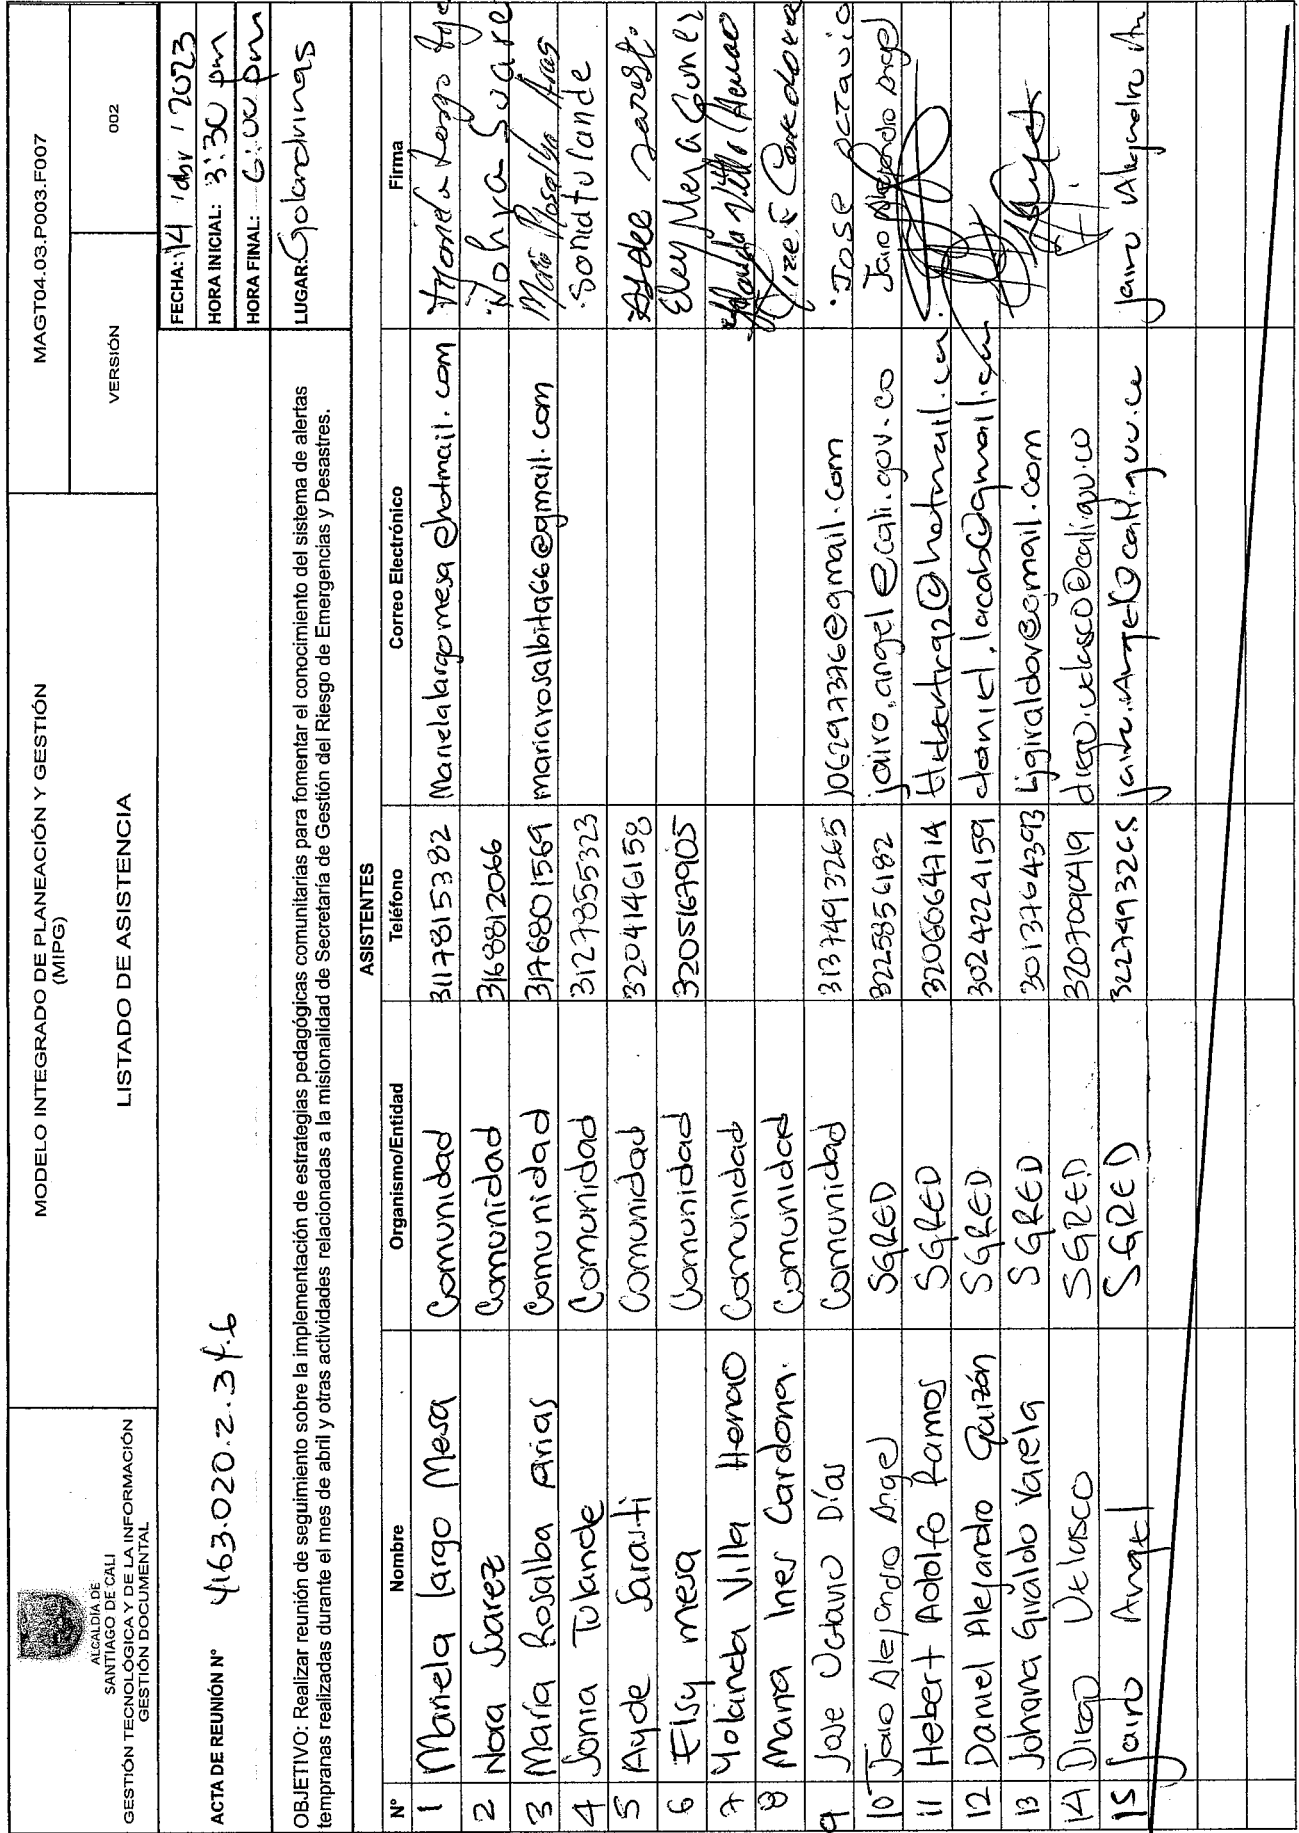 ALCALDÍA DE
SANTIAGO DE CALI
GESTIÓN TECNOLÓGICA Y DE LA INFORMACIÓN
GESTIÓN DOCUMENTAL
MODELO INTEGRADO DE PLANEACIÓN Y GESTIÓN
(MIPG)
LISTADO DE ASISTENCIA
MAGT04.03.P003.F007
VERSIÓN 002
ACTA DE REUNIÓN N° 4163.020.2.34.6
FECHA: 14 / abr / 2023
HORA INICIAL: 3:30 pm
HORA FINAL: 6:00 pm
OBJETIVO: Realizar reunión de seguimiento sobre la implementación de estrategias pedagógicas comunitarias para fomentar el conocimiento del sistema de alertas
tempranas realizadas durante el mes de abril y otras actividades relacionadas a la misionalidad de Secretaría de Gestión del Riesgo de Emergencias y Desastres.
LUGAR: Golondrinas
ASISTENTES
N° Nombre Organismo/Entidad Teléfono Correo Electrónico Firma
1 Mariela largo Mesa Comunidad 3117815382 Marielalargomesa@hotmail.com
2 Nora Suarez Comunidad 3168812066 Nohra Suare
3 María Rosalba Arias Comunidad 3176801569 mariarosalbita66@gmail.com María Rosalba Arias
4 Sonia Tulande Comunidad 3127855323 Sonia tulande
5 Ayde Sarasti Comunidad 3204146158
6 Elsy mesa Comunidad 3205167905
7 Yolanda Villa Henao Comunidad Yolanda Villa Henao
8 Maria Ines Cardona. Comunidad
9 Jose Octavio Días Comunidad 3137493265 jo6297376@gmail.com Jose octavio
10 Jairo Alejandro Angel SGRED 3225856182 jairo.angel@cali.gov.co Jairo Alejandro Angel
11 Hebert Adolfo Ramos SGRED 3206064714
12 Daniel Alejandro Garzón SGRED 3024224159
13 Johana Giraldo Varela SGRED 3013764393 Ljgiraldov@gmail.com
14 Diego Velasco SGRED 3207090419 diego.velasco@cali.gov.co
15 Jairo Angel SGRED 3227493265 jairo.Angel@cali.gov.co Jairo Alejandro An